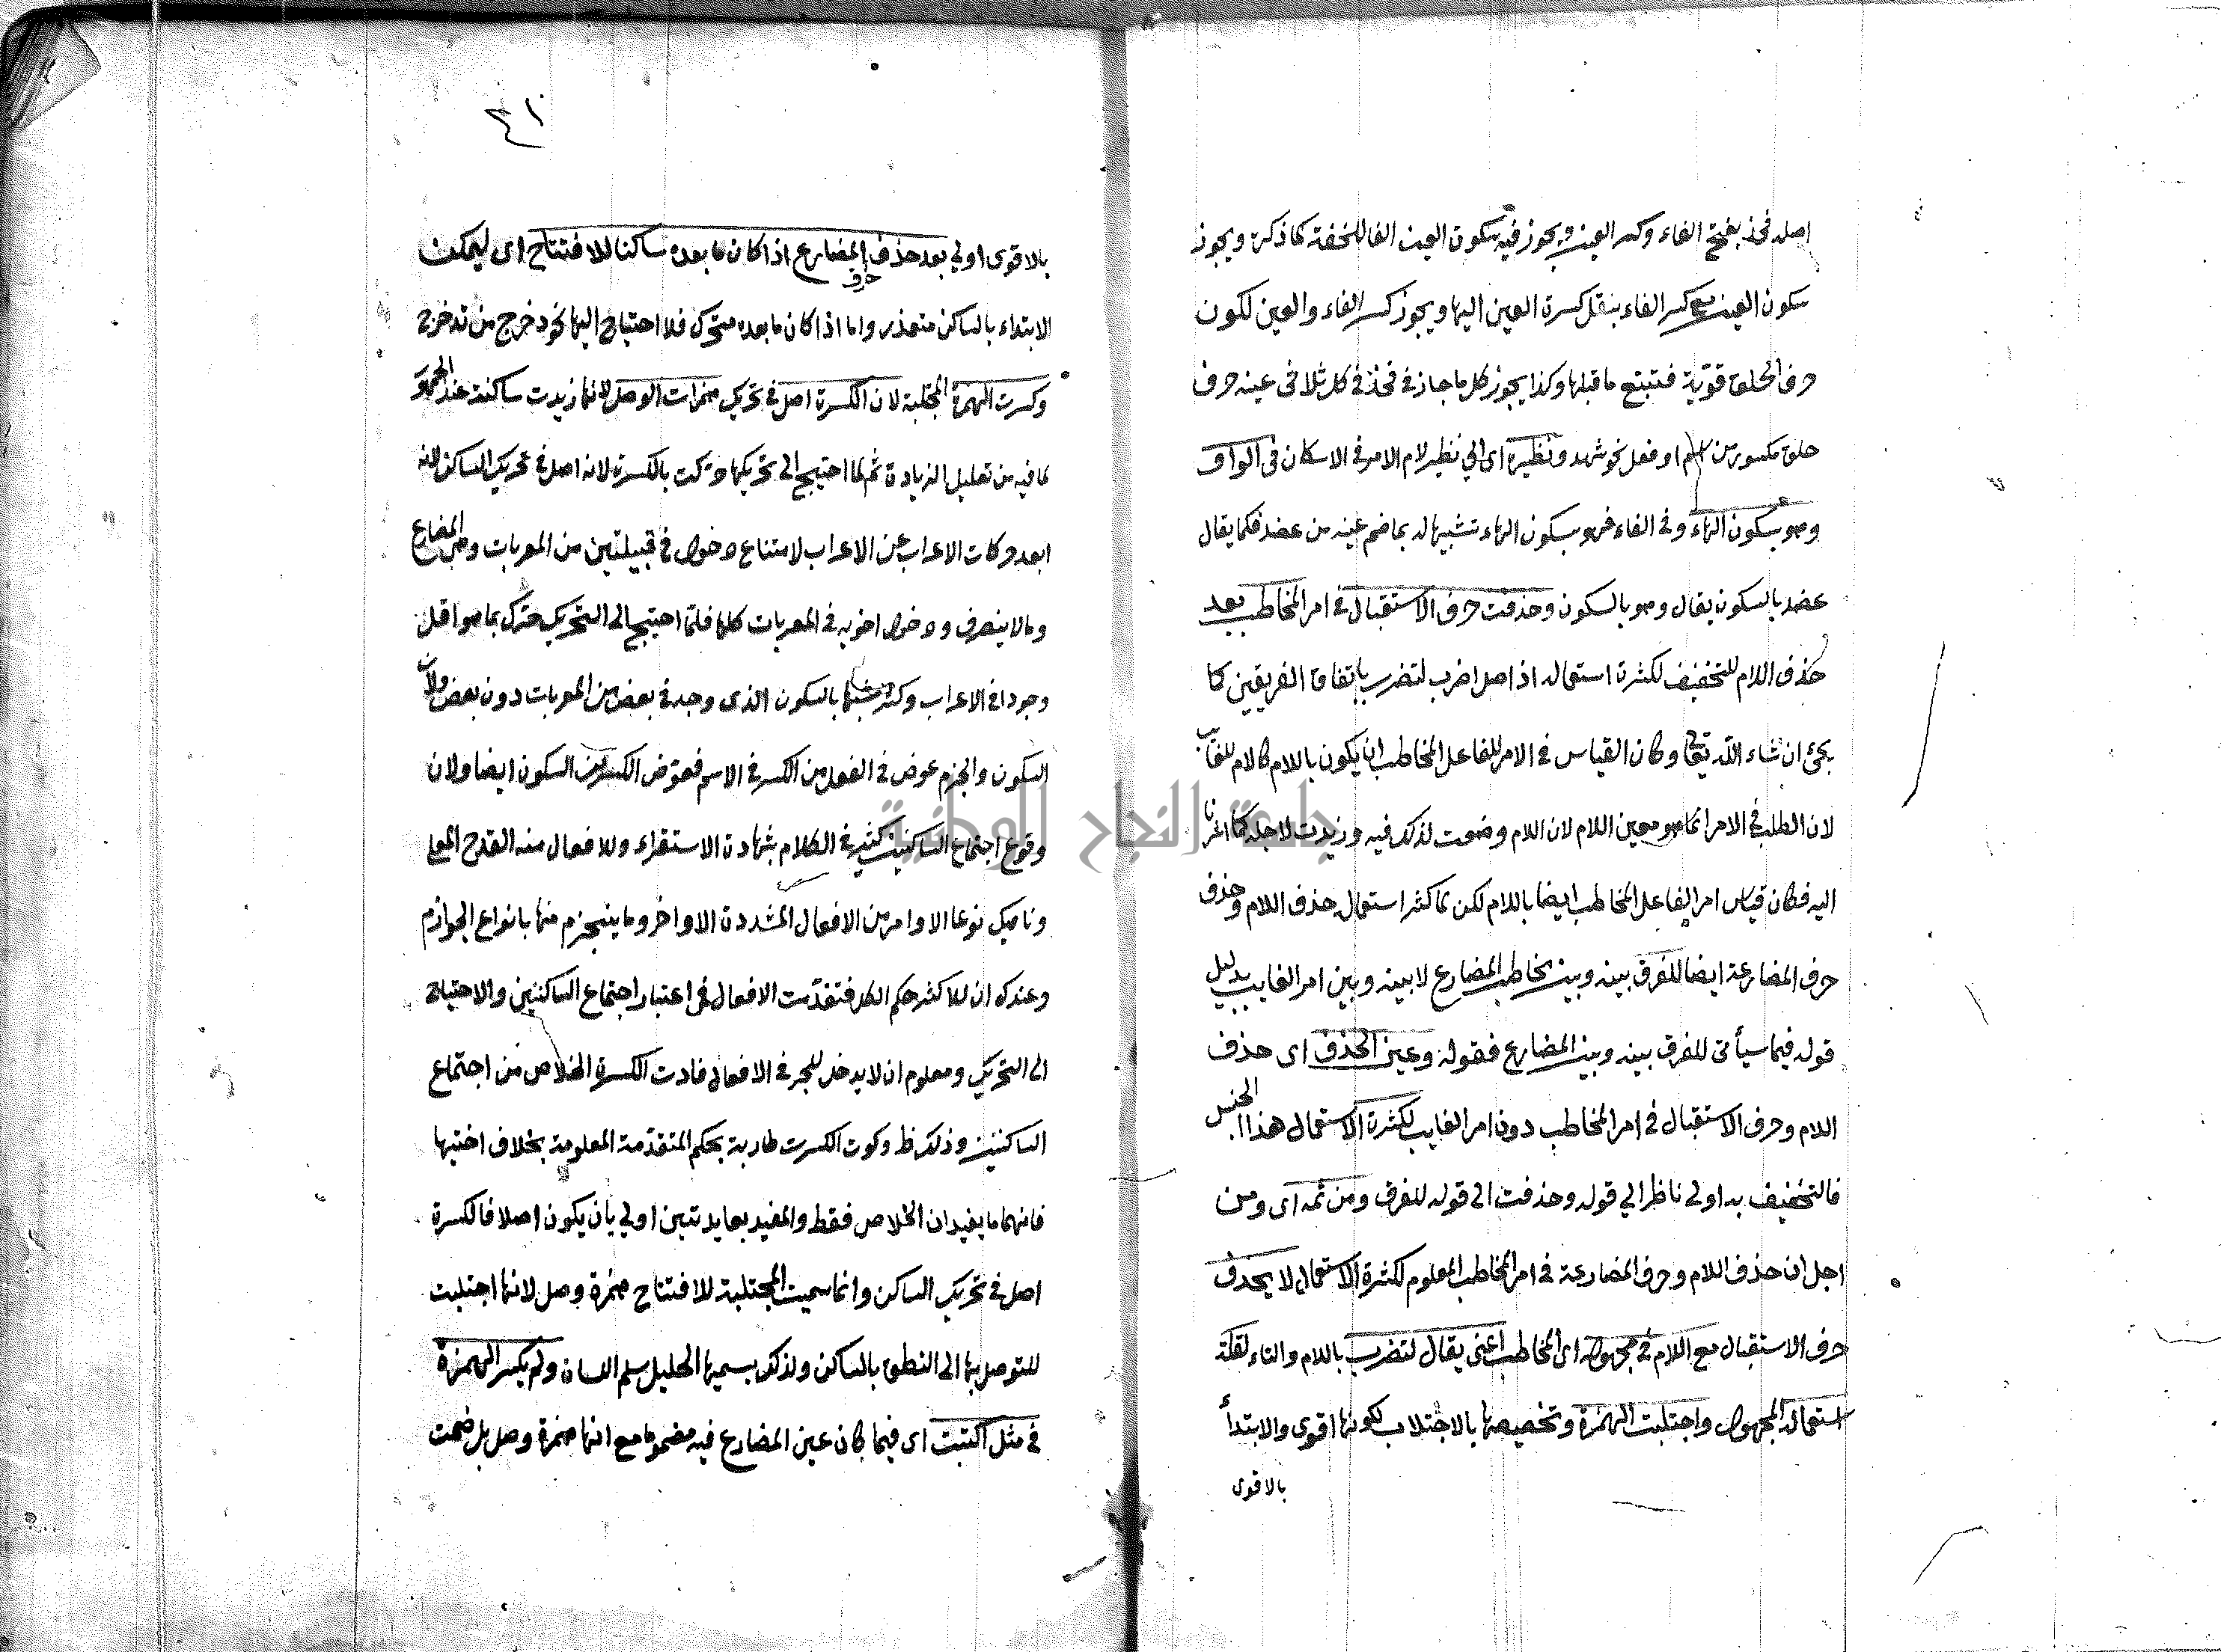 اصله فخذ بفتح الفاء وكسر العين ويجوز فيه سكون العين الفا للخفة كما ذكرة ويجوز
سكون العين مع كسر الفاء بنقل كسرة العين اليها ويجوز كسر الفاء والعين لكون
حرف الحلق قوية فتتبع ما قبلها وكذا يجوز كل ما جاز في فخذ في كل ثلاثى عينه حرف
حلق مكسور من اسم او فعل نحو شهد ونظيره اى الي نظير لام الامر فى الاسكان فى الواو
وهو بسكون الهاء وفى الفاء فهو بسكون الهاء تشبيها له بما ضم عينه من عضد فكما يقال
عضد بالسكون يقال وهو بالسكون وحذفت حرف الاستقبال فى امر المخاطب بعد
حذف اللام للتخفيف لكثرة استعماله اذ اصل اضرب لتضرب باتفاق الفريقين كما
يجئ ان شاء الله تعالى وكان القياس فى الامر للفاعل المخاطب ان يكون باللام كالام للغايب
لان الطلب فى الامر انما هو معين اللام لان اللام وضعت لذلك فيه وزيدت لاجله كما اشرنا
اليه فكان قياس امر الفاعل المخاطب ايضا باللام لكن لما كثر استعماله حذف اللام وحذف
حرف المضارعة ايضا للفرق بينه وبين مخاطب المضارع لا بينه وبين امر الغايب بدليل
قوله فيما سيأتى للفرق بينه وبين المضارع فقوله وعين الحذف اى حذف
اللام وحرف الاستقبال فى امر المخاطب دون امر الغايب لكثرة الاستعمال هذا الجنس
فالتخفيف به اولى ناظر الي قوله وحذفت الى قوله للفرق ومن ثمه اى ومن
اجل ان حذف اللام وحرف المضارعة فى امر المخاطب المعلوم لكثرة الاستعمال لا يحذف
حرف الاستقبال مع اللام فى مجهوله اى المخاطب اعنى يقال لتضرب باللام والتاء لقلة
استعماله المجهول واجتلبت الهمزة وتخصيصها بالاجتلاب لكونها اقوى والابتدأ
بالاقوى
٤١
بالاقوى اولي بعد حذف حرف المضارع اذا كان ما بعده ساكنا للافتتاح اى ليمكن
الابتداء بالساكن متعذر واما اذا كان ما بعده متحرك فلا احتياج اليها نحو دخرج من تدخرج
وكسرت الهمزة المجتلبة لان الكسرة اصل فى تحريك همزات الوصل لانها زيدت ساكنة عند الجمهور
لما فيه من تعليل الزيادة ثم لما احتيج الى تحريكها حركت بالكسرة لانه اصل فى تحريك الساكن لانه
ابعد حركات الاعراب عن الاعراب لامتناع دخوله فى قبيلتين من المعربات وهى المضارع
وما لا ينصرف ودخول اخويه فى المعربات كلها فلما احتيج الى التحريك حرك بما هو اقل
وجودا فى الاعراب وكثر شبها بالسكون الذى وجد فى بعض من المعربات دون بعض ولان
السكون والجزم عوض فى الفعل من الكسر فى الاسم فعوض الكسر من السكون ايضا ولان
وقوع اجتماع الساكنين كثير فى الكلام بشهادة الاستقراء وللافعال منه القدح المعلي
وناهيك نوعا الاوامر من الافعال المشددة الاواخر وما ينجزم منها بانواع الجوازم
وعندك ان للاكثر حكم الكل فتقدمت الافعال فى اعتبار اجتماع الساكنين والاحتياج
الى التحريك ومعلوم ان لا يدخل للجر فى الافعال فادت الكسرة الخلاص من اجتماع
الساكنين وذلك ظ وكون الكسرت طارية بحكم المتقدمة المعلومة بخلاف اختيها
فانهما ما يفيدان الخلاص فقط والمفيد بعايدتين اولي بان يكون اصلا فالكسرة
اصل فى تحريك الساكن وانما سميت المجتلبة للافتتاح همزة وصل لانها اجتلبت
للتوصل بها الى النطق بالساكن ولذلك يسميها الخليل سلم اللسان ولم يكسر الهمزة
فى مثل اكتبت اى فيما كان عين المضارع فيه مضموما مع انها همزة وصل بل ضمت
جامعة النجاح الوطنية